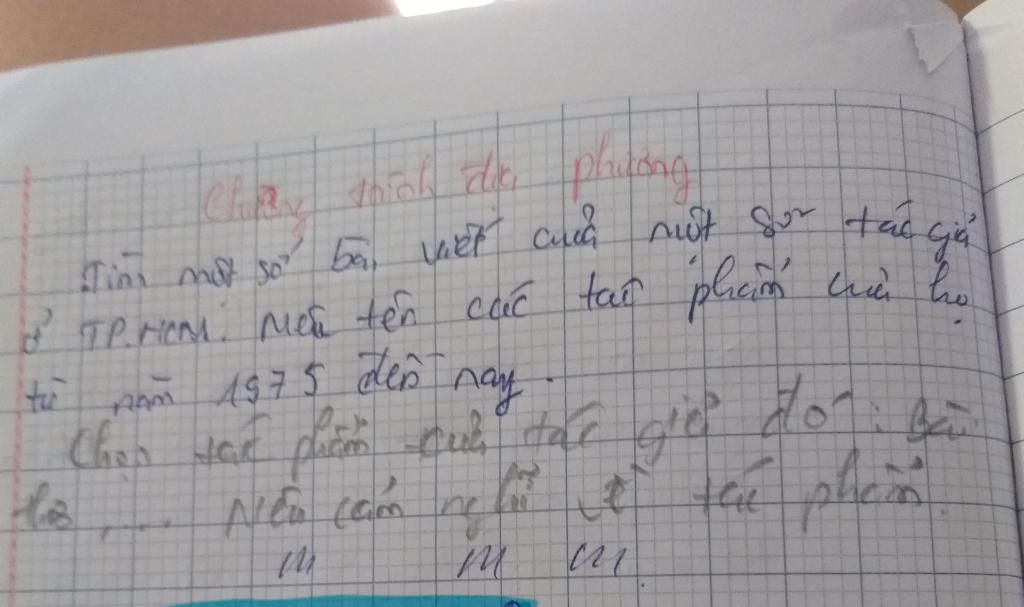 Chương trình địa phương
Tìm một số bài viết cuả một số tác giả
ở TP.HCM. Nêu tên các tác phẩm cuả họ
từ năm 1975 đến nay.
Chọn tác phẩm cuả tác giả đó: Bài
thơ, .... Nêu cảm nghĩ về tác phẩm.